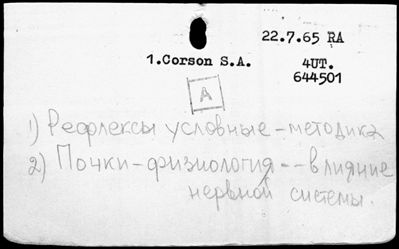 22.7.65 RA
1.Corson S.A. 4UT.
644501
A
1) Рефлексы условные - методика
2) Почки - физиология -- влияние
нервной системы.